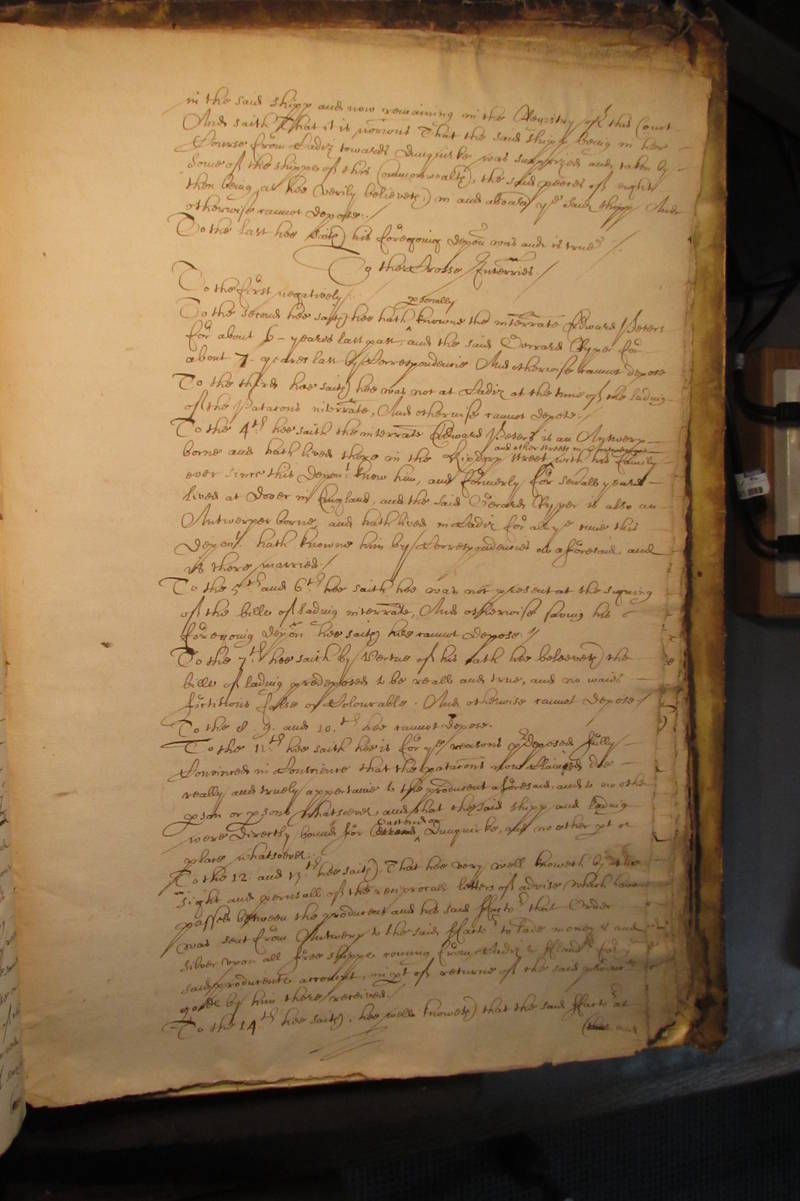 in the said shipp and now remaining in the Registry of this Court
And saith That it is notorious That the said shipp being in her
Course from Cadiz towards Dunquirke was surprized and taken by
some of the shipps of this Commonwealth, the said peeces of eight
then being, as hee verily beleeveth, in and aboard ye said shipp And
otherwise cannot depose./
To the last hee saith his foregoing depon was and is true./
To the Crosse Interries./
To the first negatively./
To the second hee saith hee hath psonally knowne the interrate Edward Peters
for about 6 - yeares last past, and the said Gerrard Ryper for
about 7. yeares last by Correspondencie And otherwise cannot depose
To the third hee saith hee was not at Cadiz at the time of the lading
of the Patacons interrate, And otherwise cannot depose./
To the 4th hee saith the interrate Edward Peters is an Antwerp
and other streets in Antwerpe
borne and hath lived there in the street with his family
ever since this Depont knew him, and formerly for severall yeares
lived at Dover in England, and the said Gerard Ryper is also an
Antwerper borne, and hath lived in Cadiz for all ye time this
Depont hath knowne him by Correspondencies as aforesaid and
is there married/
To the 5th and 6th hee saith hee was not present at the signing
of the bills of lading interrate, And otherwise saving his
foregoing depon hee saith hee cannot depose./
To the 7th hee saith by Vertue of his oath hee beleeveth the
bills of lading predeposed to be reall and true, and no waies
fictitious false or Colourable. And otherwise cannot depose/
To the 8. 9. and 10.th hee cannot depose.
To the 11.th hee saith hee is for ye reasons pdeposed fully
Convinced in Conscience that the patacons now Claimed doe
really and truely appertaine to the producent aforesaid, and to no other
pson or psons whatsoever, and that the said shipp and lading
were directly bound for Ostend or Dunquirke, and no other pt or
place whatsoever./
To the 12 and 13th hee saith, That hee very well knoweth by the
sight and perusall of the reciprocall letters of advise which have
passed between the producent and his said Factor that Order
was sent from Antwerp to the said Factor to lade money and
silver upon all free shipps coming from Cadiz to Flandrs for
said producents accompt, in pt of returne of the said producents
goods by him there received./
To the 14th hee saith, hee well knoweth that the said Factor at